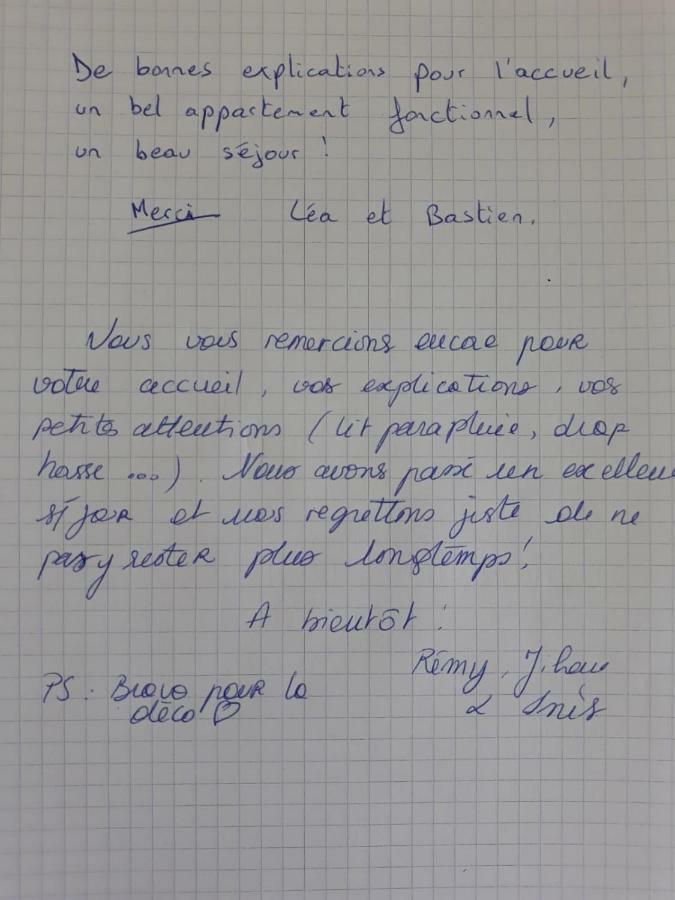 De bonnes explications pour l'accueil,
un bel appartement fonctionnel,
un beau séjour !
Merci Léa et Bastien.
Nous vous remercions encore pour
votre accueil, vos explications, vos
petites attentions (lit parapluie, drap
housse ...). Nous avons passé un excellent
séjour et nous regrettons juste de ne
pas y rester plus longtemps !
A bientôt !
Rémy,
& Inès
PS : Bravo pour la
déco